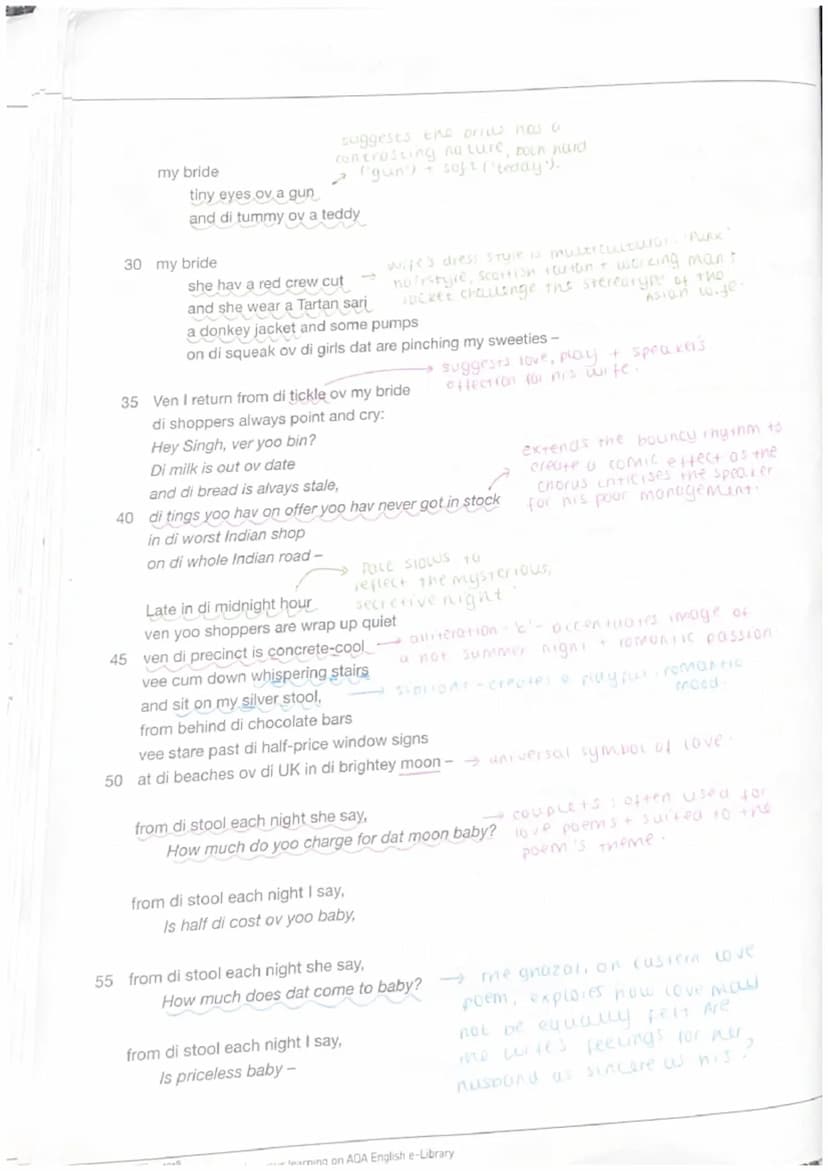 suggests the bride has a
contrasting nature, both hard
('gun') + soft ('teddy').
my bride
tiny eyes ov a gun
and di tummy ov a teddy
30 my bride
she hav a red crew cut
and she wear a Tartan sari
a donkey jacket and some pumps
on di squeak ov di girls dat are pinching my sweeties –
→ wife's dress style is multicultural. 'Punk'
hairstyle, Scottish tartan + working man's
jacket challenge the stereotype of the
Asian wife.
→ suggests love, play + speaker's
affection for his wife.
35 Ven I return from di tickle ov my bride
di shoppers always point and cry:
Hey Singh, ver yoo bin?
Di milk is out ov date
and di bread is alvays stale,
40 di tings yoo hav on offer yoo hav never got in stock
in di worst Indian shop
on di whole Indian road –
extends the bouncy rhythm to
create a comic effect as the
chorus criticises the speaker
for his poor management.
→ Pace slows to
reflect the mysterious,
secretive night.
Late in di midnight hour
ven yoo shoppers are wrap up quiet
45 ven di precinct is concrete-cool
vee cum down whispering stairs
and sit on my silver stool,
from behind di chocolate bars
vee stare past di half-price window signs
50 at di beaches ov di UK in di brightey moon –
→ alliteration 'c' - accentuates image of
a hot summer night + romantic passion
→ sibilant - creates a playful, romantic
mood.
→ universal symbol of love.
from di stool each night she say,
How much do yoo charge for dat moon baby?
→ couplets: often used for
love poems + suited to the
poem's theme.
from di stool each night I say,
Is half di cost ov yoo baby,
55 from di stool each night she say,
How much does dat come to baby?
from di stool each night I say,
Is priceless baby –
→ The ghazal, an eastern love
poem, explores how love may
not be equally felt. Are
the wife's feelings for her
husband as sincere as his?
learning on AQA English e-Library